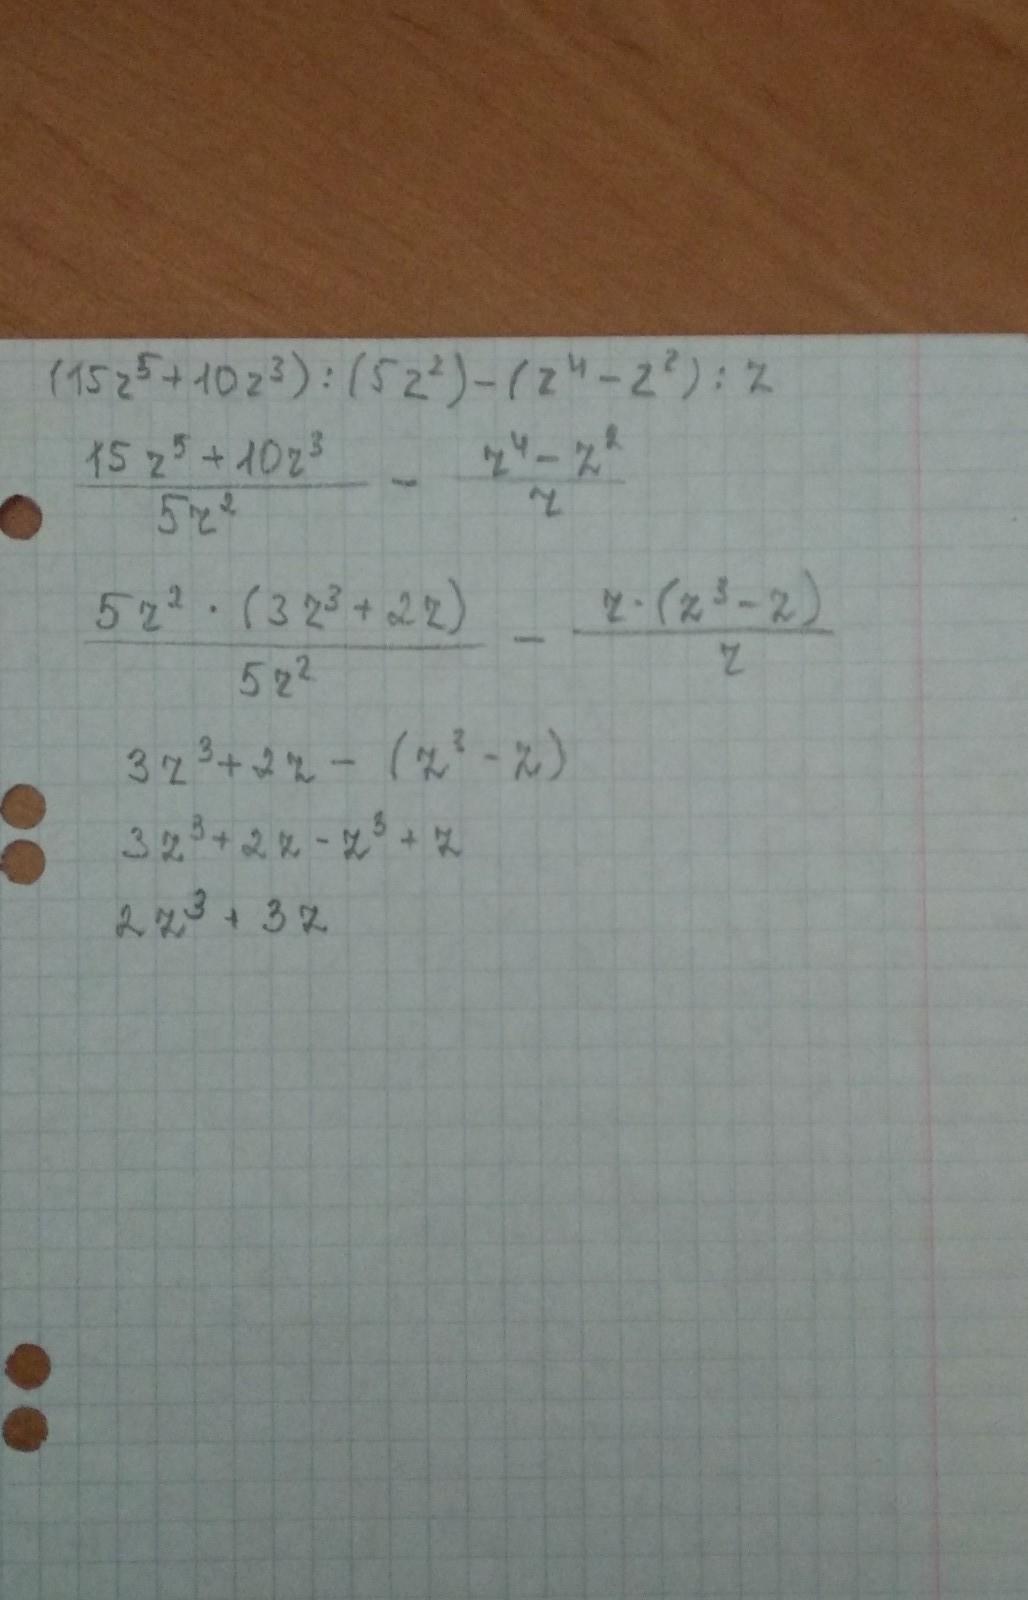 (15z⁵+10z³):(5z²)-(z⁴-z²):z
(15z⁵+10z³)/(5z²) - (z⁴-z²)/z
(5z²·(3z³+2z))/(5z²) - (z·(z³-z))/z
3z³+2z-(z³-z)
3z³+2z-z³+z
2z³+3z